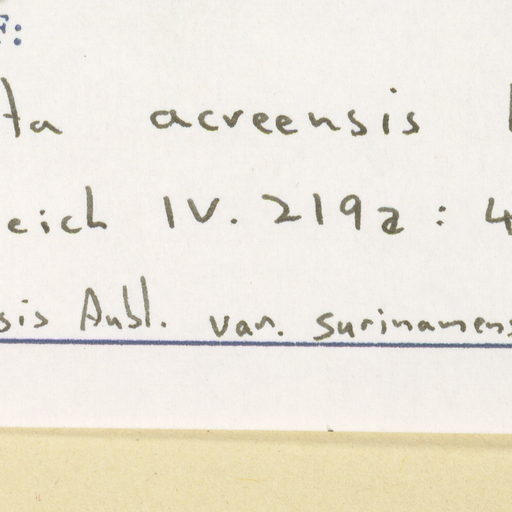 F:
ta acreensis
eich IV. 219a : 4
sis Aubl. var. surinamens